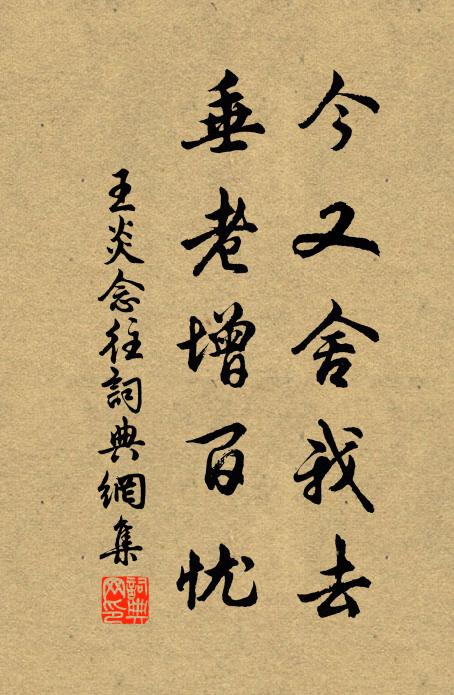 今又舍我去
垂老增百忧
王炎念往詞典網集
詞典网印